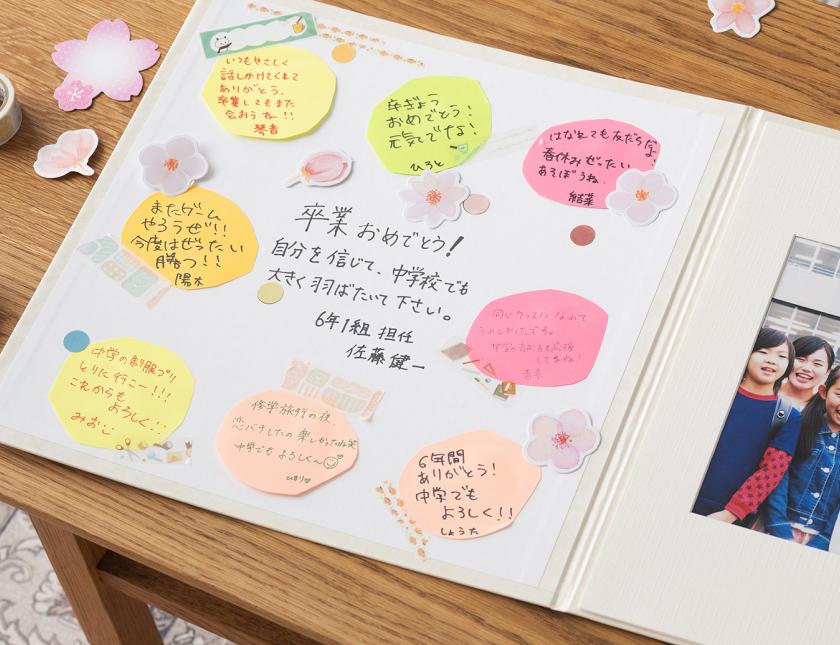 いつもやさしく
話しかけてくれて
ありがとう。
卒業してもまた
会おうね!!
琴音
卒ぎょう
おめでとう!
元気でな!
ひろと
はなれても友だちだよ。
春休みぜったい
あそぼうね。
結菜
またゲーム
やろうぜ!!
今度はぜったい
勝つ!!
陽太
卒業おめでとう!
自分を信じて、中学校でも
大きく羽ばたいて下さい。
6年1組 担任
佐藤健一
同じクラスになれて
うれしかったです。
中学の部活も応援
してるね!
杏奈
中学の制服プリ
とりに行こー!!!
これからも
よろしく···
みおこ
修学旅行の夜、
恋バナしたの楽しかったね笑
中学でもよろしく〜
ひまり♡
6年間
ありがとう!
中学でも
よろしく!!
しょうた